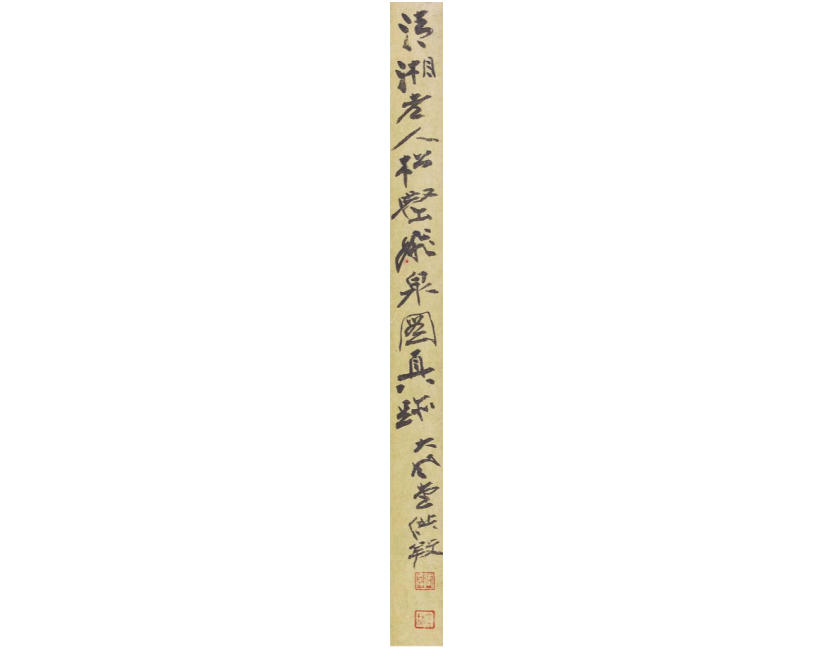 清湘老人松壑飛泉圖真跡
大風堂供養